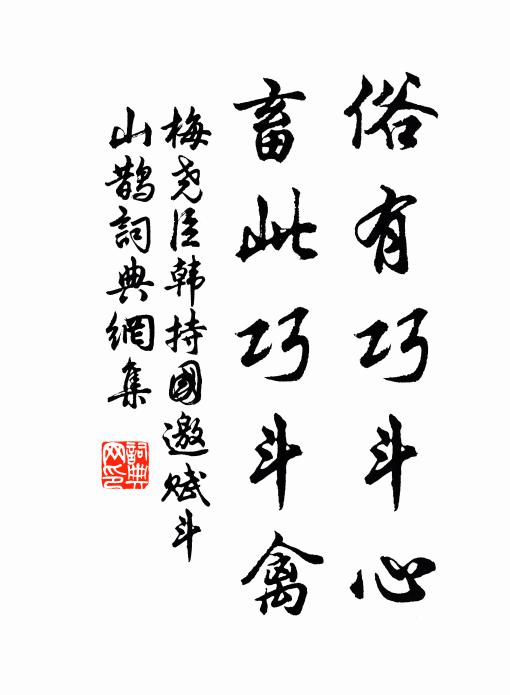 俗有巧斗心
畜此巧斗禽
梅尧臣韩持國邀赋斗
山鹊詞典網集
詞典
网印